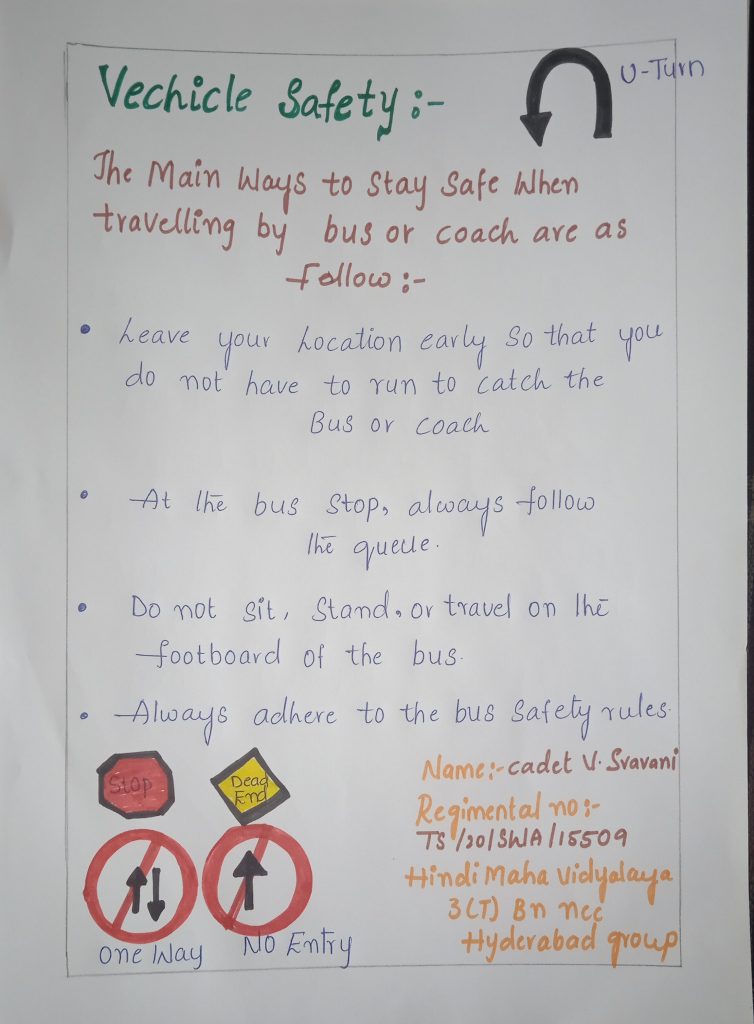 Vechicle Safety:-
U-Turn
The Main Ways to Stay Safe When
travelling by bus or coach are as
follow:-
Leave your Location early So that you
do not have to run to catch the
Bus or coach
At the bus Stop, always follow
the queue.
Do not Sit, Stand, or travel on the
footboard of the bus.
Always adhere to the bus Safety rules.
Stop
Dead
End
One Way
No Entry
Name:- cadet V. Sravani
Regimental no:-
TS/20/SWA/15509
Hindi Maha Vidyalaya
3(T) Bn ncc
Hyderabad group